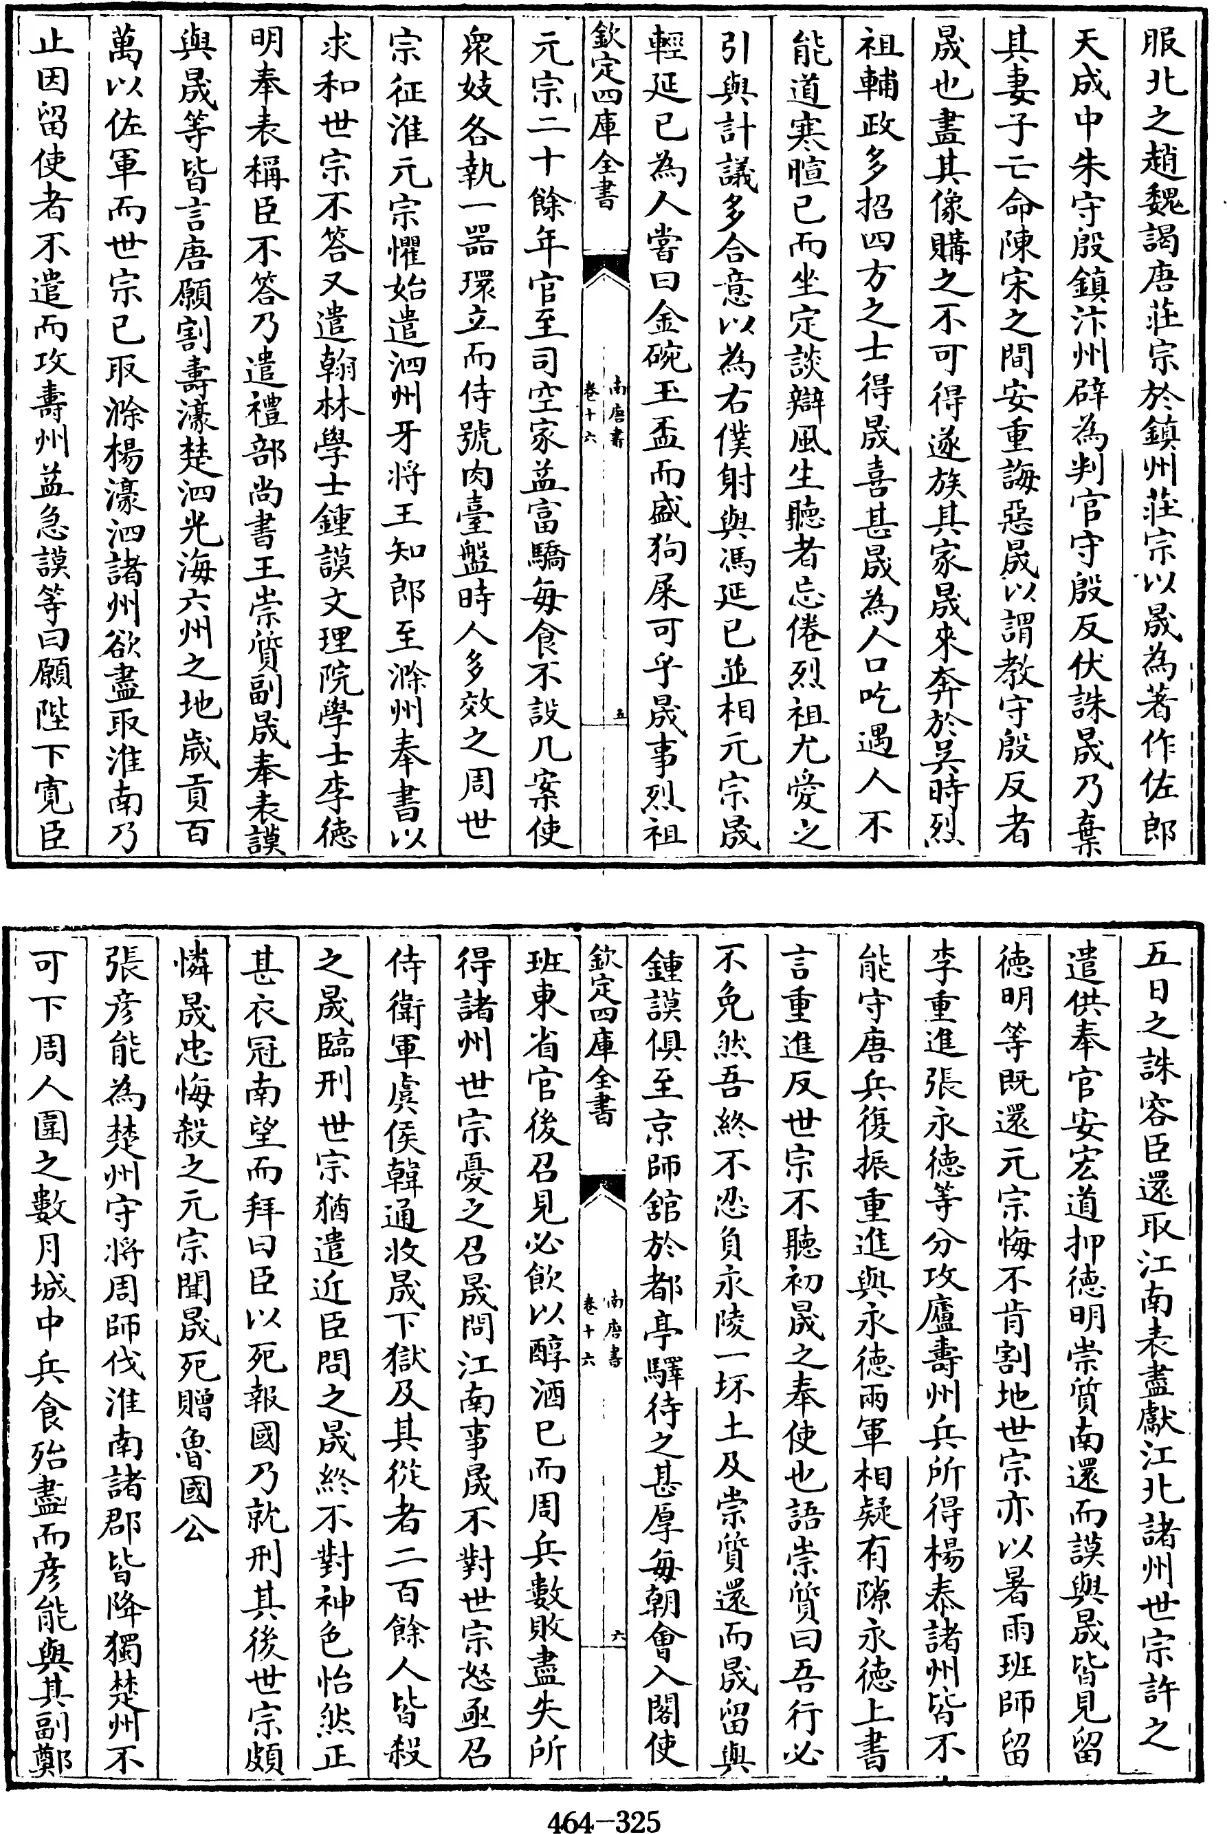 服北之趙魏謁唐莊宗於鎮州莊宗以晟為著作佐郎
天成中朱守殷鎮汴州辟為判官守殷反伏誅晟乃棄
其妻子亡命陳宋之間安重誨惡晟以謂教守殷反者
晟也畫其像購之不可得遂族其家晟來奔於吳時烈
祖輔政多招四方之士得晟喜甚晟為人口吃遇人不
能道寒暄已而坐定談辯風生聽者忘倦烈祖尤愛之
引與計議多合意以為右僕射與馮延已並相元宗晟
輕延已為人嘗曰金碗玉盃而盛狗屎可乎晟事烈祖
欽定四庫全書
南唐書
卷十六
五
元宗二十餘年官至司空家益富驕每食不設几案使
衆妓各執一器環立而侍號肉臺盤時人多效之周世
宗征淮元宗懼始遣泗州牙將王知郎至滁州奉書以
求和世宗不答又遣翰林學士鍾謨文理院學士李徳
明奉表稱臣不答乃遣禮部尚書王崇質副晟奉表謨
與晟等皆言唐願割壽濠楚泗光海六州之地歲貢百
萬以佐軍而世宗已取滁楊濠泗諸州欲盡取淮南乃
止因留使者不遣而攻壽州益急謨等曰願陛下寛臣
五日之誅容臣還取江南表盡獻江北諸州世宗許之
遣供奉官安宏道押徳明崇質南還而謨與晟皆見留
徳明等既還元宗悔不肯割地世宗亦以暑雨班師留
李重進張永徳等分攻廬壽州兵所得楊泰諸州皆不
能守唐兵復振重進與永徳兩軍相疑有隙永徳上書
言重進反世宗不聽初晟之奉使也語崇質曰吾行必
不免然吾終不忍負永陵一抔土及崇質還而晟留與
鍾謨俱至京師舘於都亭驛待之甚厚每朝會入閣使
欽定四庫全書
南唐書
卷十六
六
班東省官後召見必飲以醇酒已而周兵數敗盡失所
得諸州世宗憂之召晟問江南事晟不對世宗怒亟召
侍衛軍虞侯韓通收晟下獄及其從者二百餘人皆殺
之晟臨刑世宗猶遣近臣問之晟終不對神色怡然正
其衣冠南望而拜曰臣以死報國乃就刑其後世宗頗
憐晟忠悔殺之元宗聞晟死贈魯國公
張彦能為楚州守將周師伐淮南諸郡皆降獨楚州不
可下周人圍之數月城中兵食殆盡而彦能與其副鄭
464-325